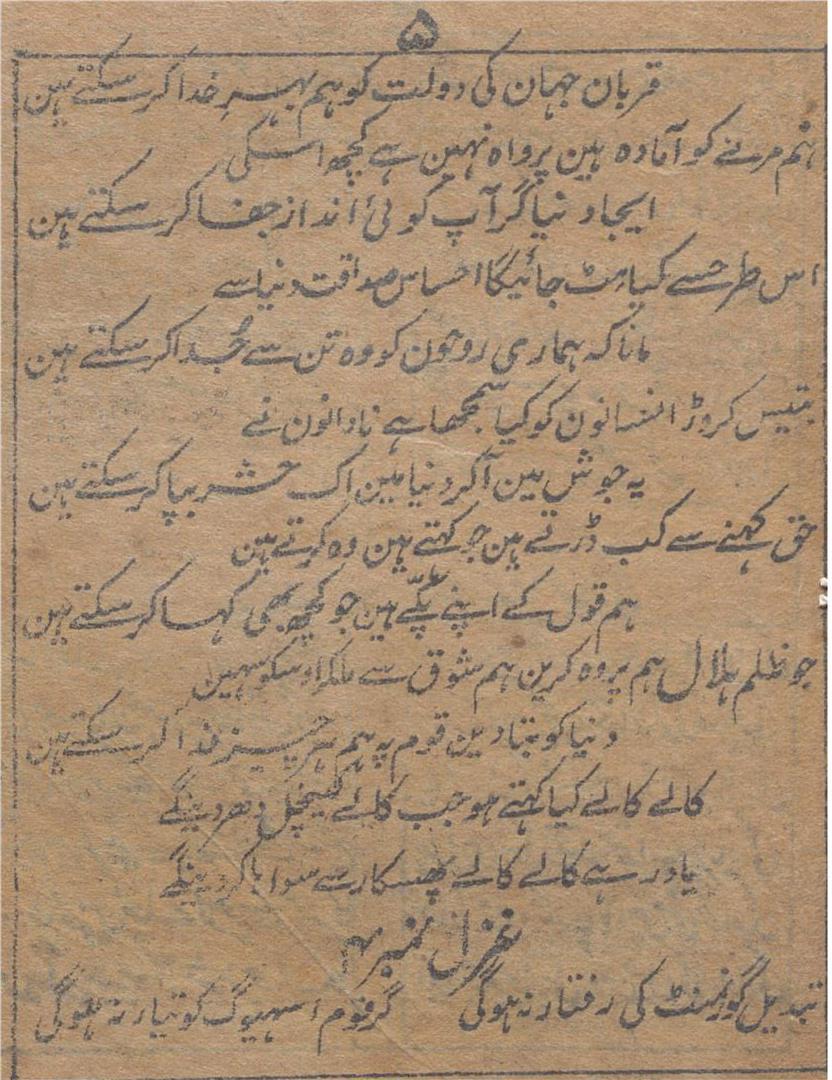 ۵
قربان جہان کی دولت کو ہم بہرِ خدا کر سکتے ہین
ہم مرنے کو آمادہ ہین پرواہ نہین ہے کچھ اسکی
ایجاد نیا گر آپ کوئی انداز جفا کر سکتے ہین
اس طرحسے کیا مٹ جائیگا احساس صداقت دنیا سے
مانا کہ ہماری روحون کو وہ تن سے جُدا کر سکتے ہین
بتیس کروڑ انسانون کو کیا سمجھا ہے نادانون نے
یہ جوش مین آکر دنیا مین اک حشر بپا کر سکتے ہین
حق کہنے سے کب ڈرتے ہین جو کہتے ہین وہ کرتے ہین
ہم قول کے اپنے پکّے ہین جو کچھ بھی کہا کر سکتے ہین
جو ظلم ہلال ہم پر وہ کرین ہم شوق سے ملکر اوسکو سہین
دنیا کو بتا دین قوم پہ ہم ہر چیز فدا کر سکتے ہین
کالے کالے کیا کہتے ہو جب کالے کینچل دھر دینگے
یاد رہے کالے کالے پھسکار سے سواہا کر دینگے
غزل نمبر ۴
تبدیل گورنمنٹ کی رفتار نہ ہوگی گر قوم اسہیوگ کو تیار نہ ہوگی